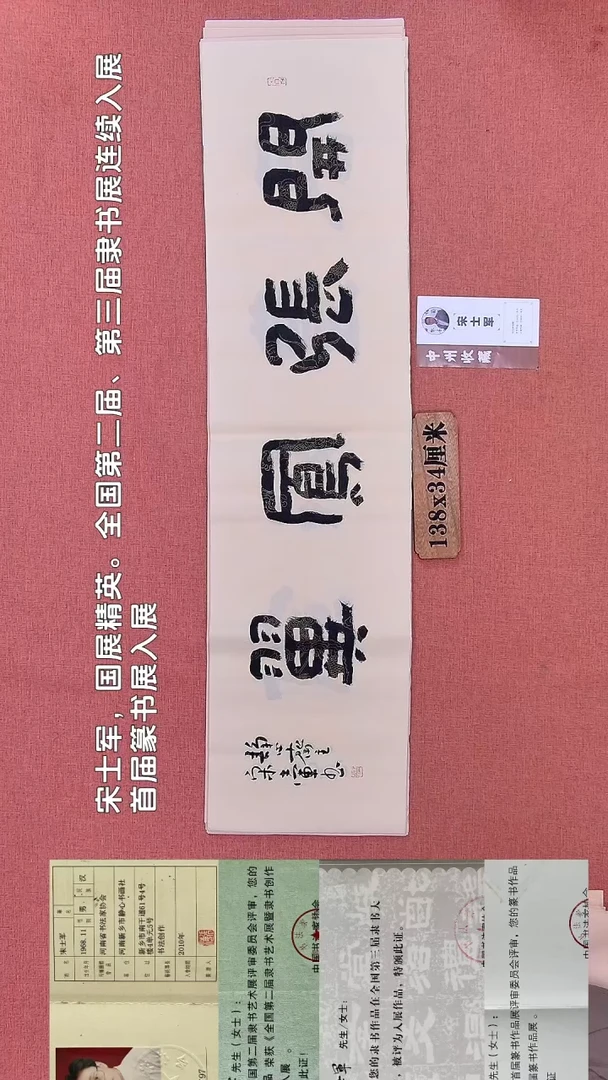 宋士军，国展精英。全国第二届、第三届隶书展连续入展
首届篆书展入展
開張鳳翼
静心斋主
宋士軍书
宋士军
中州收藏
138x34厘米
宋士军
1968.11
男
汉
河南省书法家协会
河南新乡市静心书画社
新乡市南干道61号4号
楼4单元5号
书法创作
2010年
97
先生（女士）：
国第二届隶书艺术展评审委员会评审，您的
荣获《全国第二届隶书艺术展暨隶书创作
入展。
此证！
軍
先生/女士：
您的隶书作品在全国第三届隶书大
，被评为入展作品，特颁此证。
先生（女士）：
首届篆书作品展评审委员会评审，您的篆书作品
首届篆书作品展。